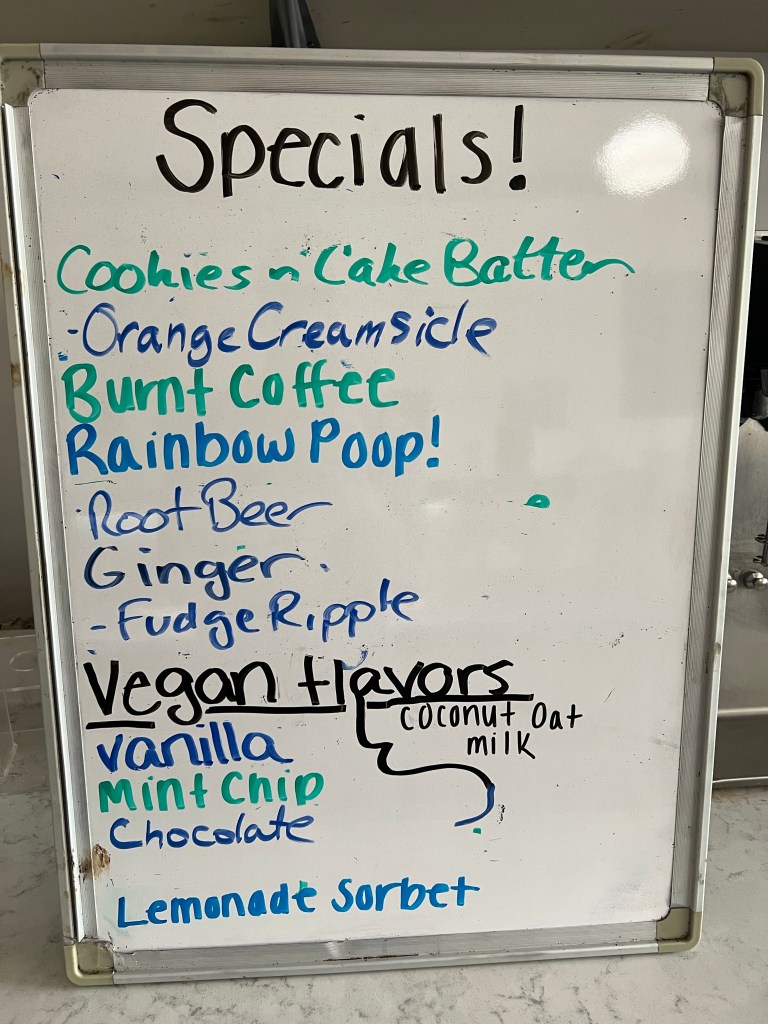 Specials!
Cookies n Cake Batter
-Orange Creamsicle
Burnt Coffee
Rainbow Poop!
Root Beer
Ginger
-Fudge Ripple
Vegan flavors
coconut oat
milk
vanilla
Mint Chip
Chocolate
Lemonade Sorbet